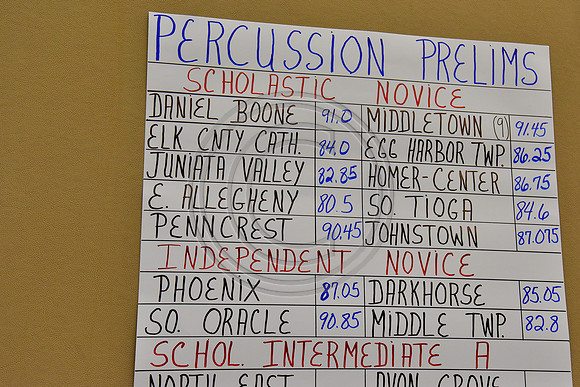 PERCUSSION PRELIMS
SCHOLASTIC NOVICE
DANIEL BOONE 91.0 MIDDLETOWN (9) 91.45
ELK CNTY CATH. 84.0 EGG HARBOR TWP. 86.25
JUNIATA VALLEY 82.85 HOMER-CENTER 86.75
E. ALLEGHENY 80.5 SO. TIOGA 84.6
PENNCREST 90.45 JOHNSTOWN 87.075
INDEPENDENT NOVICE
PHOENIX 87.05 DARKHORSE 85.05
SO. ORACLE 90.85 MIDDLE TWP. 82.8
SCHOL. INTERMEDIATE A
NORTH EAST AVON GROVE